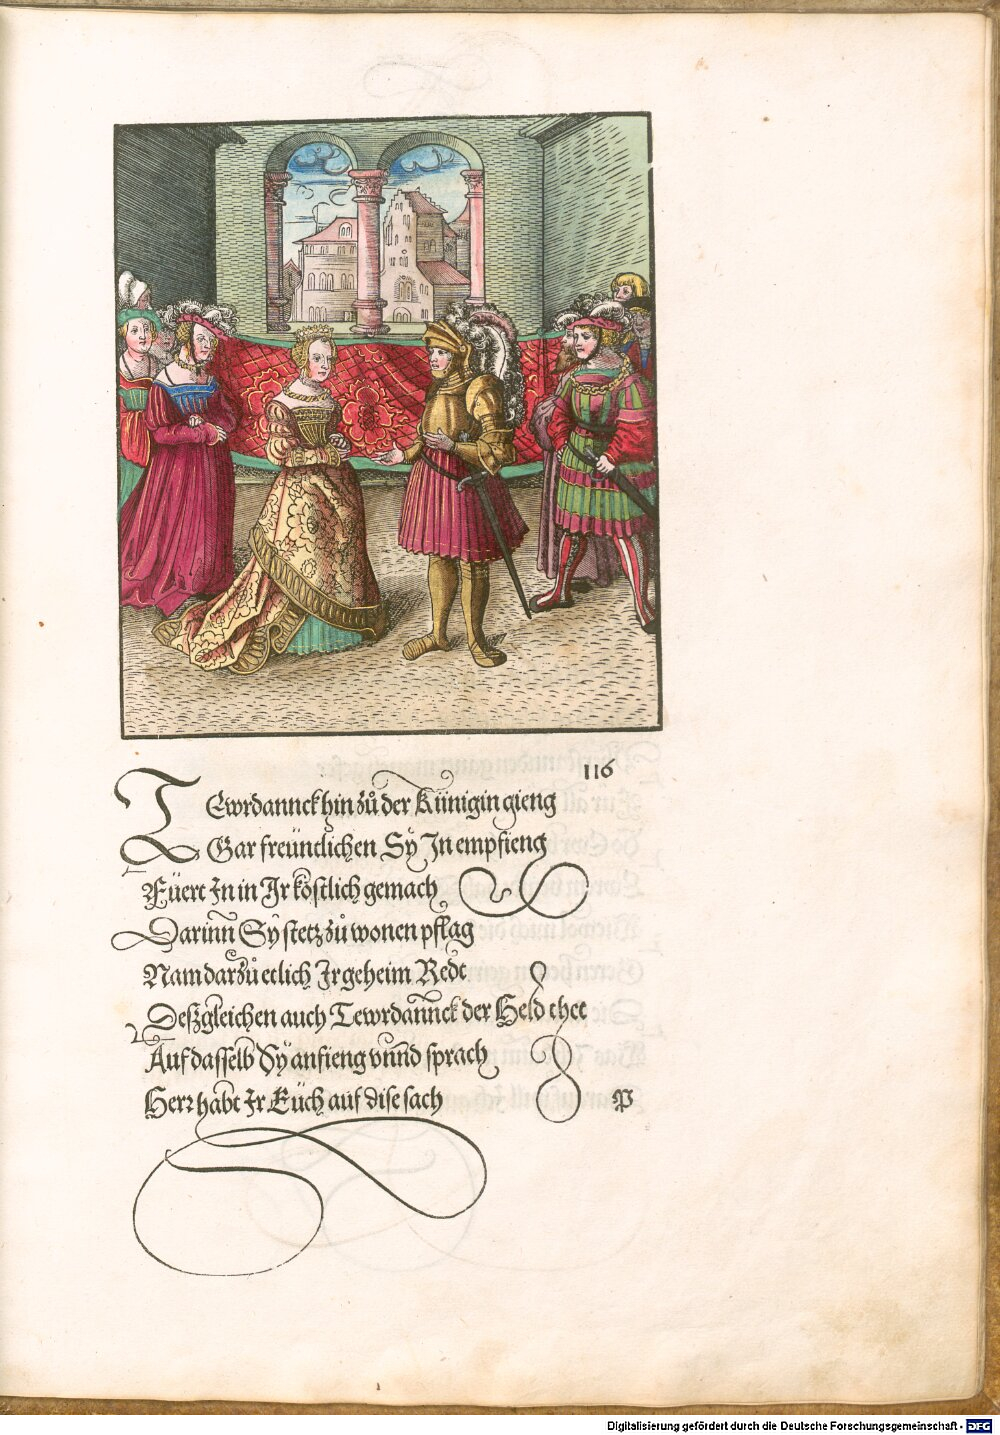 116
Tewrdannckh hin zů der Künigin gieng
Gar freündlichen Sy In empfieng
Füert In in Ir köstlich gemach
Darinn Sy stetz zů wonen pflag
Nam darzů etlich Ir geheim Redt
Deßgleichen auch Tewrdannck der Held thet
Auf dasselb Sy anfieng vnnd sprach
Herr habt Ir Euch auf dise sach
P
Digitalisierung gefördert durch die Deutsche Forschungsgemeinschaft - DFG